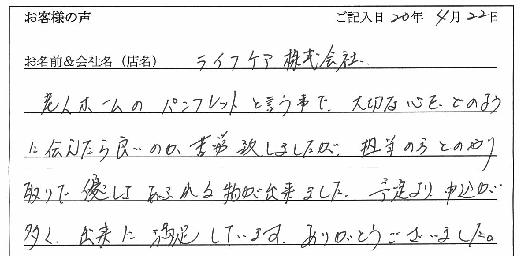 お客様の声　ご記入日 20年 4月 22日
お名前&会社名（店名）　ライフケア 株式会社
老人ホームの パンフレットと言う事で、大切な心を どのよう
に伝えたら良いのか 苦労致しましたが、担当の方とのやり
取りで 優しさあふれる物が出来ました。予定より 申込が
多く、出来に 満足しています。ありがとうございました。